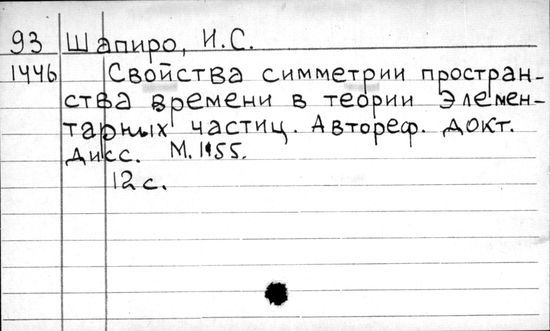 93 Шапиро, И.С.
1446 Свойства симметрии простран-
ства времени в теории элемен-
тарных частиц. Автореф. докт.
дисс. М. 1955.
12 с.